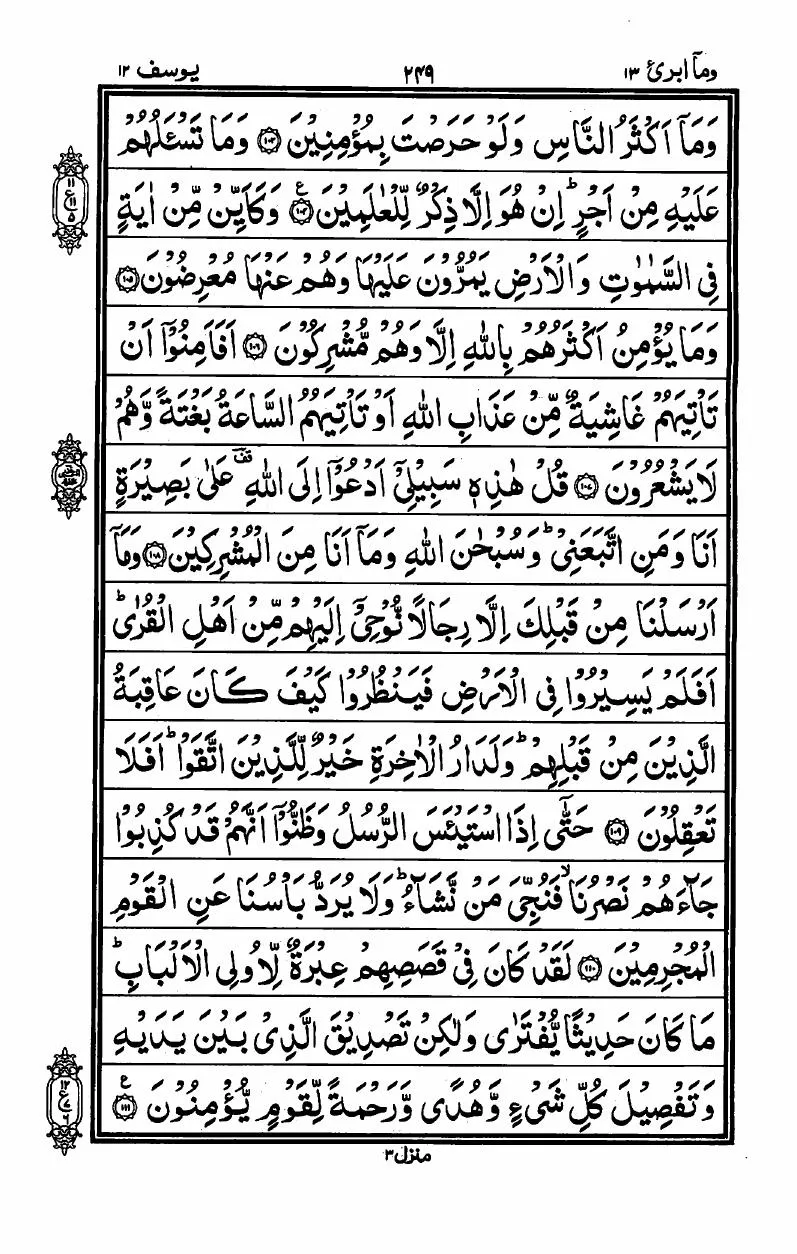 ومآ ابرئ ١٣ ٢٤٩ يوسف ١٢
وَمَآ اَكْثَرُ النَّاسِ وَلَوْ حَرَصْتَ بِمُؤْمِنِيْنَ ﴿١٠٣﴾ وَمَا تَسْـَٔلُهُمْ
عَلَيْهِ مِنْ اَجْرٍ ؕ اِنْ هُوَ اِلَّا ذِكْرٌ لِّلْعٰلَمِيْنَ ﴿١٠٤﴾ ع وَكَاَيِّنْ مِّنْ اٰيَةٍ
١١
ع
١١
٥
فِى السَّمٰوٰتِ وَالْاَرْضِ يَمُرُّوْنَ عَلَيْهَا وَهُمْ عَنْهَا مُعْرِضُوْنَ ﴿١٠٥﴾
وَمَا يُؤْمِنُ اَكْثَرُهُمْ بِاللّٰهِ اِلَّا وَهُمْ مُّشْرِكُوْنَ ﴿١٠٦﴾ اَفَاَمِنُوْٓا اَنْ
تَاْتِيَهُمْ غَاشِيَةٌ مِّنْ عَذَابِ اللّٰهِ اَوْ تَاْتِيَهُمُ السَّاعَةُ بَغْتَةً وَّهُمْ
لَا يَشْعُرُوْنَ ﴿١٠٧﴾ قُلْ هٰذِهٖ سَبِيْلِىْٓ اَدْعُوْٓا اِلَى اللّٰهِ ۚ قف عَلٰى بَصِيْرَةٍ
اَنَا وَمَنِ اتَّبَعَنِىْ ؕ وَسُبْحٰنَ اللّٰهِ وَمَآ اَنَا مِنَ الْمُشْرِكِيْنَ ﴿١٠٨﴾ وَمَآ
اَرْسَلْنَا مِنْ قَبْلِكَ اِلَّا رِجَالًا نُّوْحِىْٓ اِلَيْهِمْ مِّنْ اَهْلِ الْقُرٰى ؕ
اَفَلَمْ يَسِيْرُوْا فِى الْاَرْضِ فَيَنْظُرُوْا كَيْفَ كَانَ عَاقِبَةُ
الَّذِيْنَ مِنْ قَبْلِهِمْ ؕ وَلَدَارُ الْاٰخِرَةِ خَيْرٌ لِّلَّذِيْنَ اتَّقَوْا ؕ اَفَلَا
تَعْقِلُوْنَ ﴿١٠٩﴾ حَتّٰٓى اِذَا اسْتَيْـَٔسَ الرُّسُلُ وَظَنُّوْٓا اَنَّهُمْ قَدْ كُذِبُوْا
جَآءَهُمْ نَصْرُنَا ۙ فَنُجِّىَ مَنْ نَّشَآءُ ؕ وَلَا يُرَدُّ بَاْسُنَا عَنِ الْقَوْمِ
الْمُجْرِمِيْنَ ﴿١١٠﴾ لَقَدْ كَانَ فِىْ قَصَصِهِمْ عِبْرَةٌ لِّاُولِى الْاَلْبَابِ ؕ
مَا كَانَ حَدِيْثًا يُّفْتَرٰى وَلٰكِنْ تَصْدِيْقَ الَّذِىْ بَيْنَ يَدَيْهِ
وَتَفْصِيْلَ كُلِّ شَىْءٍ وَّهُدًى وَّرَحْمَةً لِّقَوْمٍ يُّؤْمِنُوْنَ ﴿١١١﴾ ع
١٢
ع
٧
٦
منزل ٣